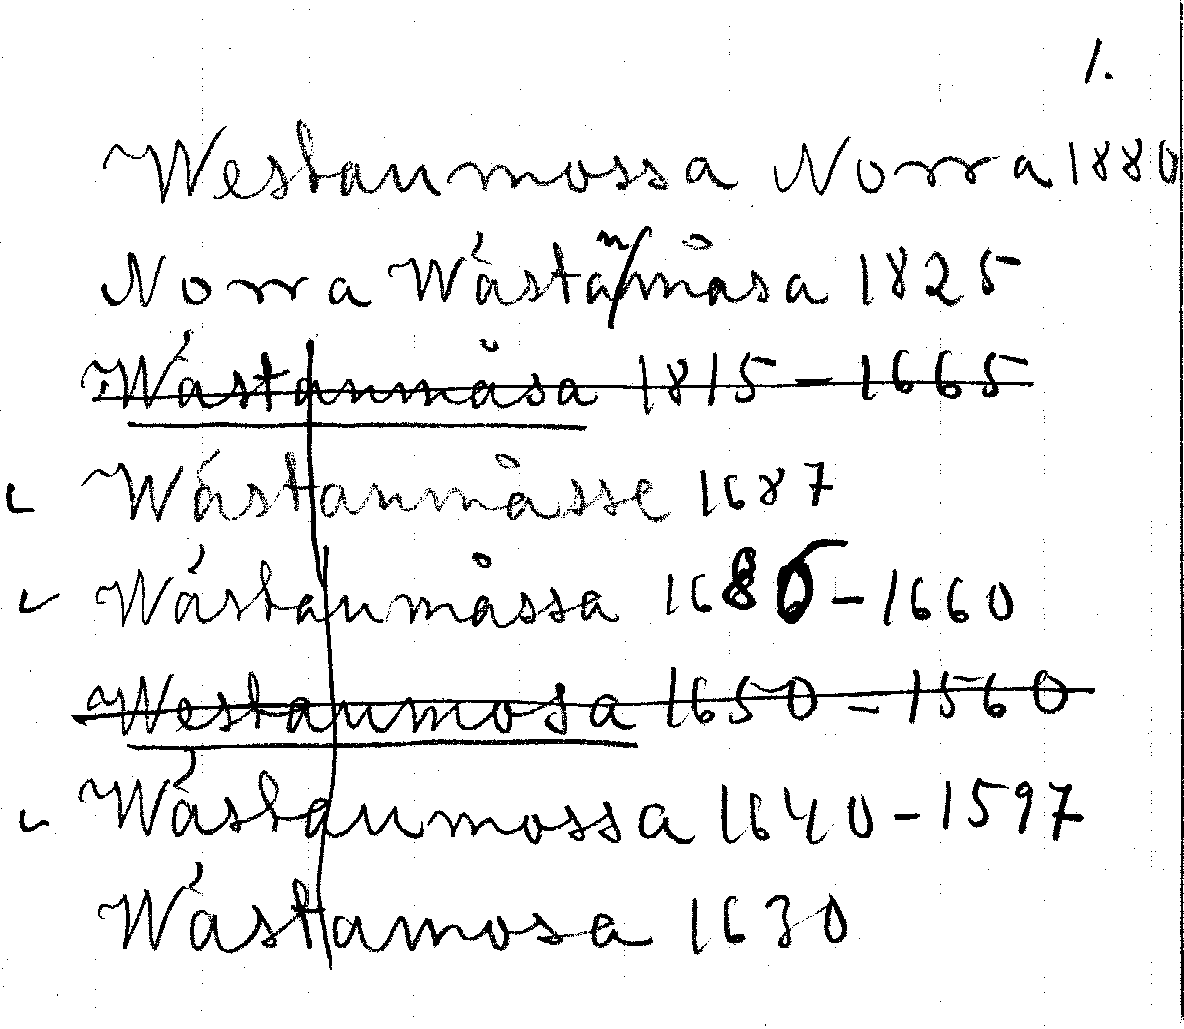 1.
Westanmossa Norra 1880
Norra Wästanmåsa 1825
Wästanmåsa 1815 - 1665
Wästanmåsse 1687
Wästanmåssa 1685 - 1660
Westanmosa 1650 - 1560
Wästanmossa 1640 - 1597
Wästamosa 1630